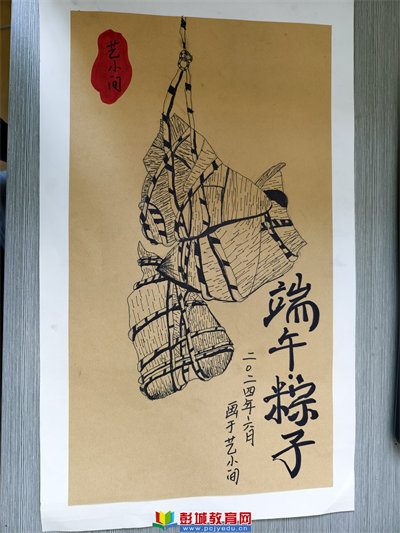 艺小间
端午粽子
二〇二四年六月
画于艺小间
彭城教育网
www.pcjyedu.cn